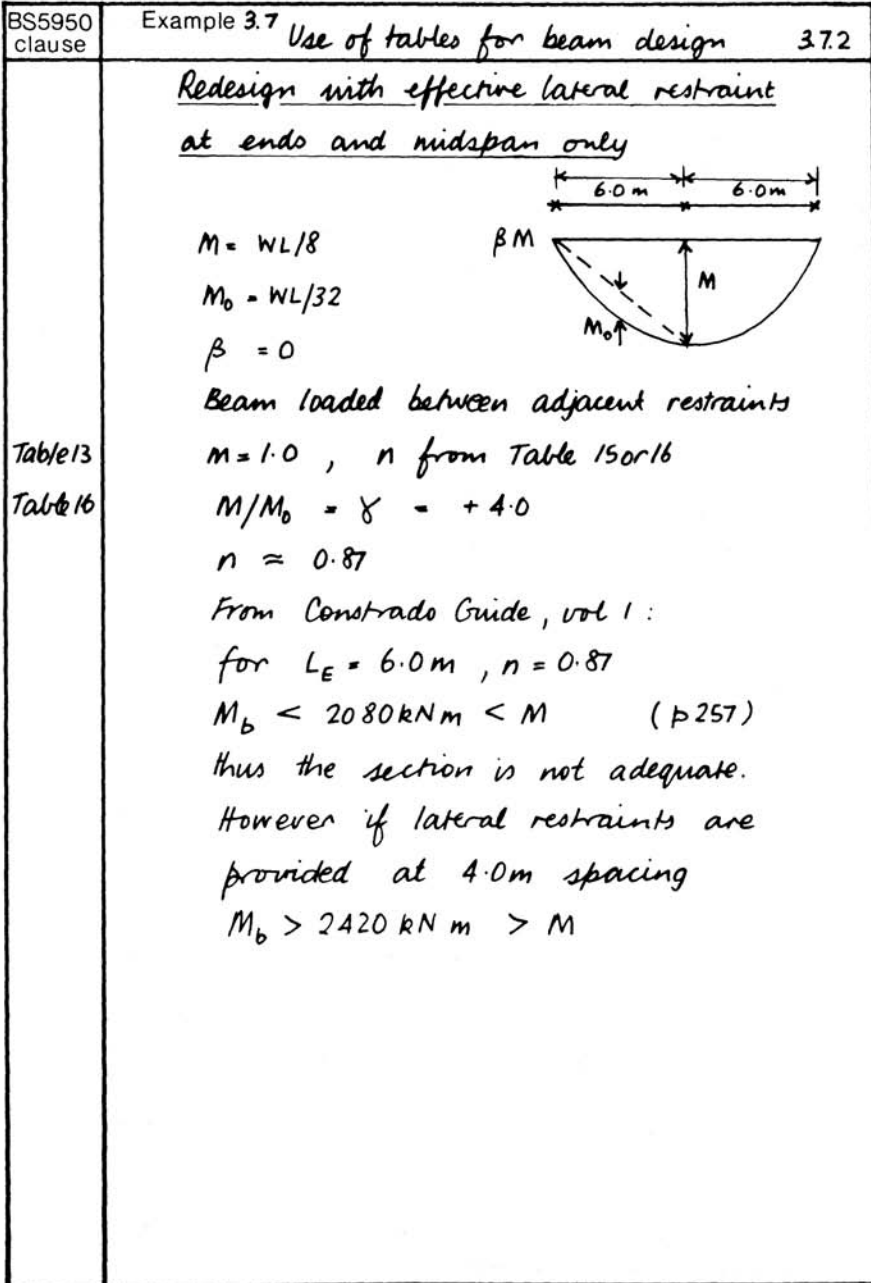 BS5950 clause
Example 3.7 Use of tables for beam design 3.7.2
Redesign with effective lateral restraint
at ends and midspan only
6.0m 6.0m
M = WL/8
βM
M
M₀ = WL/32
M₀
β = 0
Beam loaded between adjacent restraints
Table 13 m = 1.0 , n from Table 15 or 16
Table 16 M/M₀ = γ = +4.0
n ≈ 0.87
From Constrado Guide, vol 1 :
for L_E = 6.0m , n = 0.87
M_b < 2080 kNm < M (p 257)
thus the section is not adequate.
However if lateral restraints are
provided at 4.0m spacing
M_b > 2420 kN m > M